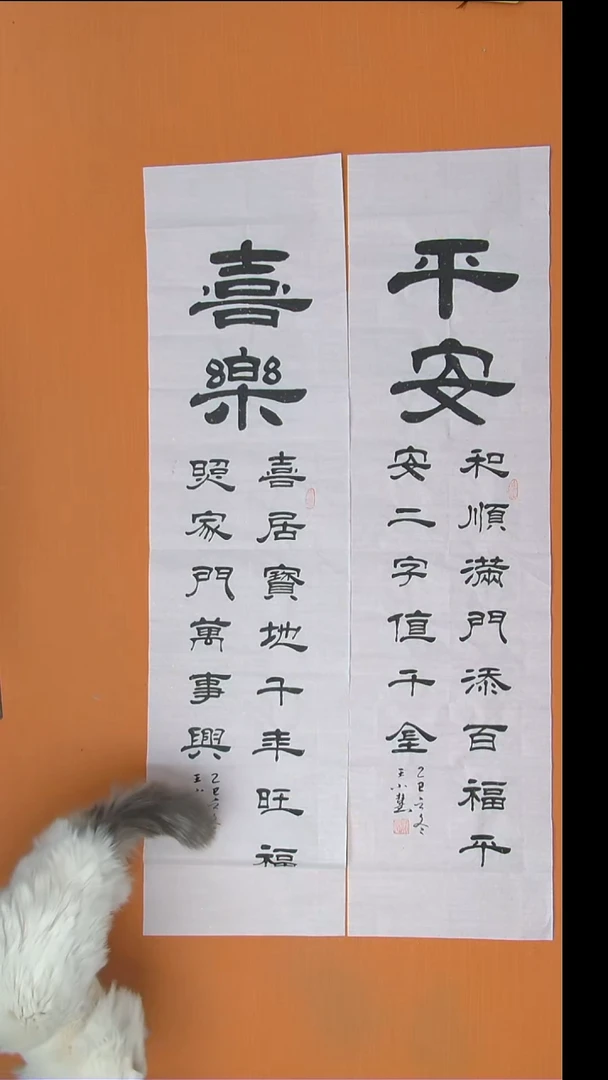 平安
和順滿門添百福平
安二字值千金
乙巳立冬
王小慧
喜樂
喜居寶地千年旺福
照家門萬事興
乙巳立
王